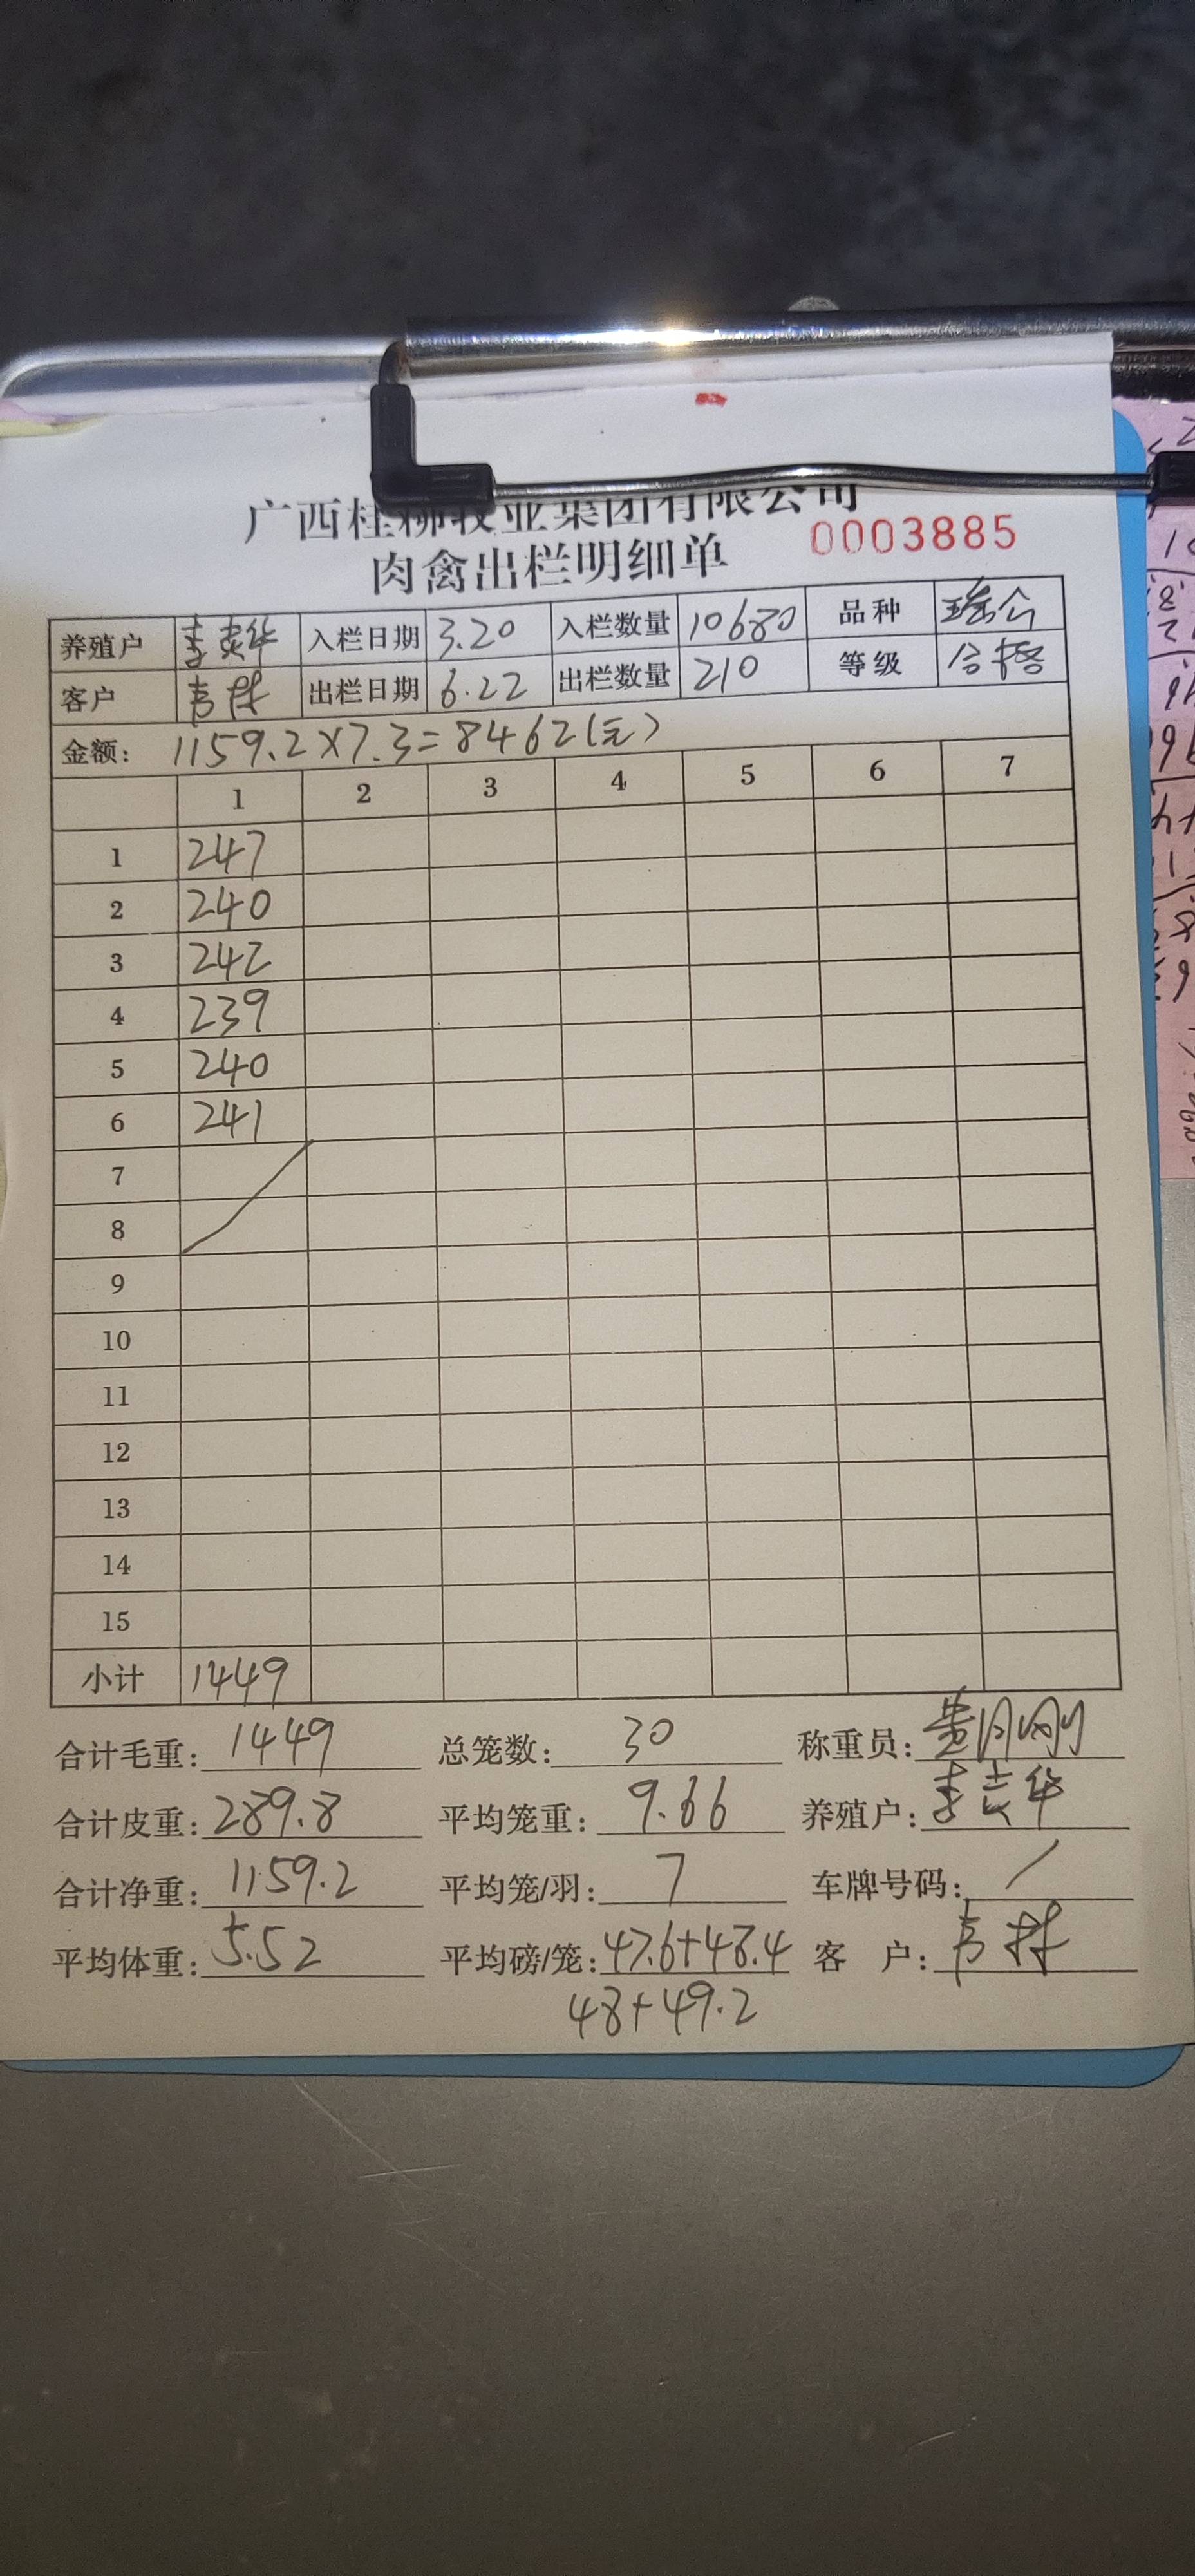 广西桂柳牧业集团有限公司
肉禽出栏明细单 0003885
养殖户 入栏日期 3.20 入栏数量 10680 品种 瑶公
客户 韦林 出栏日期 6.22 出栏数量 210 等级 合格
金额: 1159.2×7.3=8462(元)
1 2 3 4 5 6 7
1 247
2 240
3 242
4 239
5 240
6 241
7
8
9
10
11
12
13
14
15
小计 1449
合计毛重: 1449 总笼数: 30 称重员:
合计皮重: 289.8 平均笼重: 9.66 养殖户:
合计净重: 1159.2 平均笼/羽: 7 车牌号码: /
平均体重: 5.52 平均磅/笼: 47.6+48.4 客 户: 韦林
48+49.2